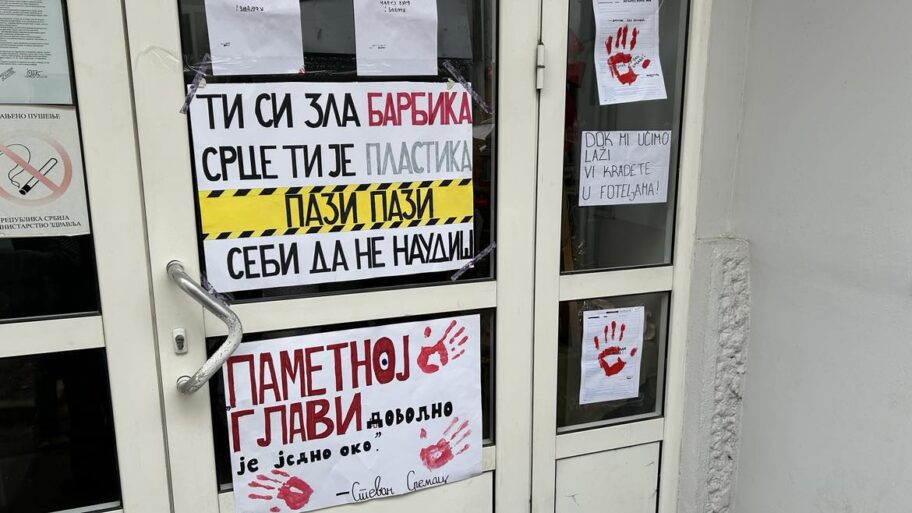 ТИ СИ ЗЛА БАРБИКА
СРЦЕ ТИ ЈЕ ПЛАСТИКА
ПАЗИ ПАЗИ
СЕБИ ДА НЕ НАУДИШ
"ПАМЕТНОЈ
ГЛАВИ ДОВОЉНО
ЈЕ ЈЕДНО ОКО."
— Стеван Сремац
DOK MI UČIMO
LAŽI
VI KRADETE
U FOTELJAMA!
ПУШЕЊЕ
РЕПУБЛИКА СРБИЈА
МИНИСТАРСТВО ЗДРАВЉА